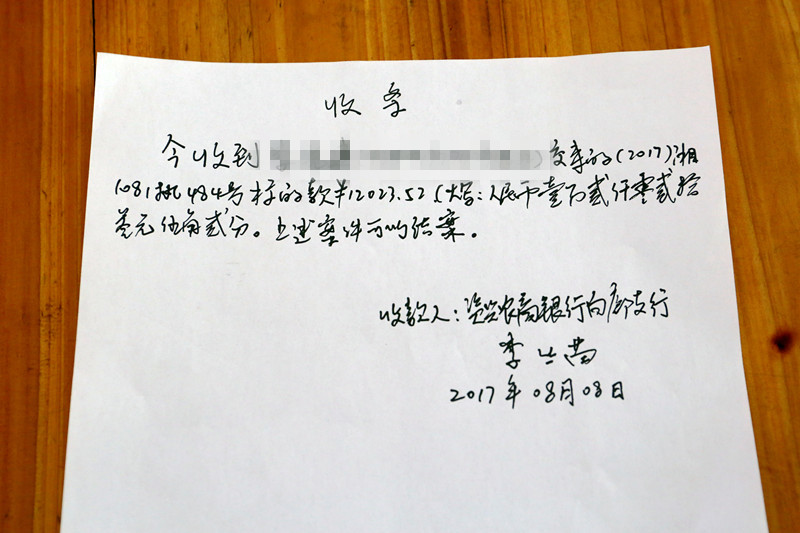 收条
今收到 交来的(2017)湘
1081执484号标的款¥12023.52(大写:人民币壹万贰仟零贰拾
叁元伍角贰分。上述案件可以结案。
收款人:资兴农商银行白廊支行
李
2017年08月08日